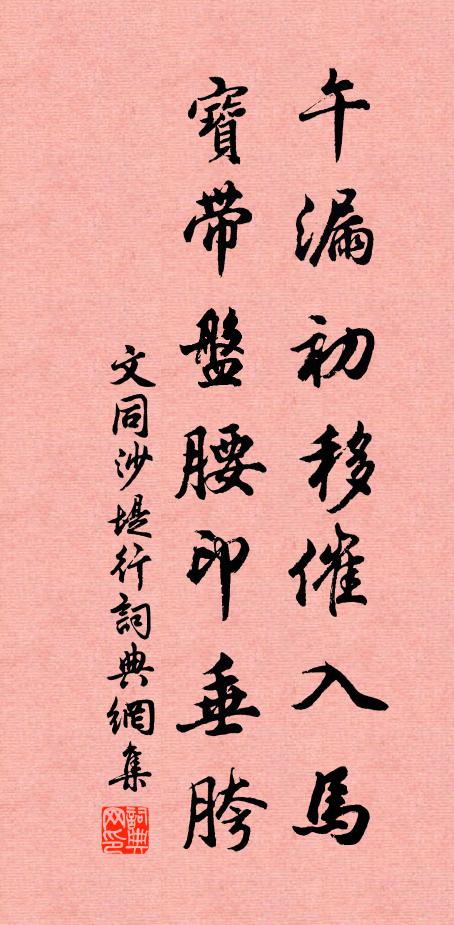 午漏初移催入馬
寶帶盤腰印垂胯
文同沙堤行詞典網集
詞典
网印